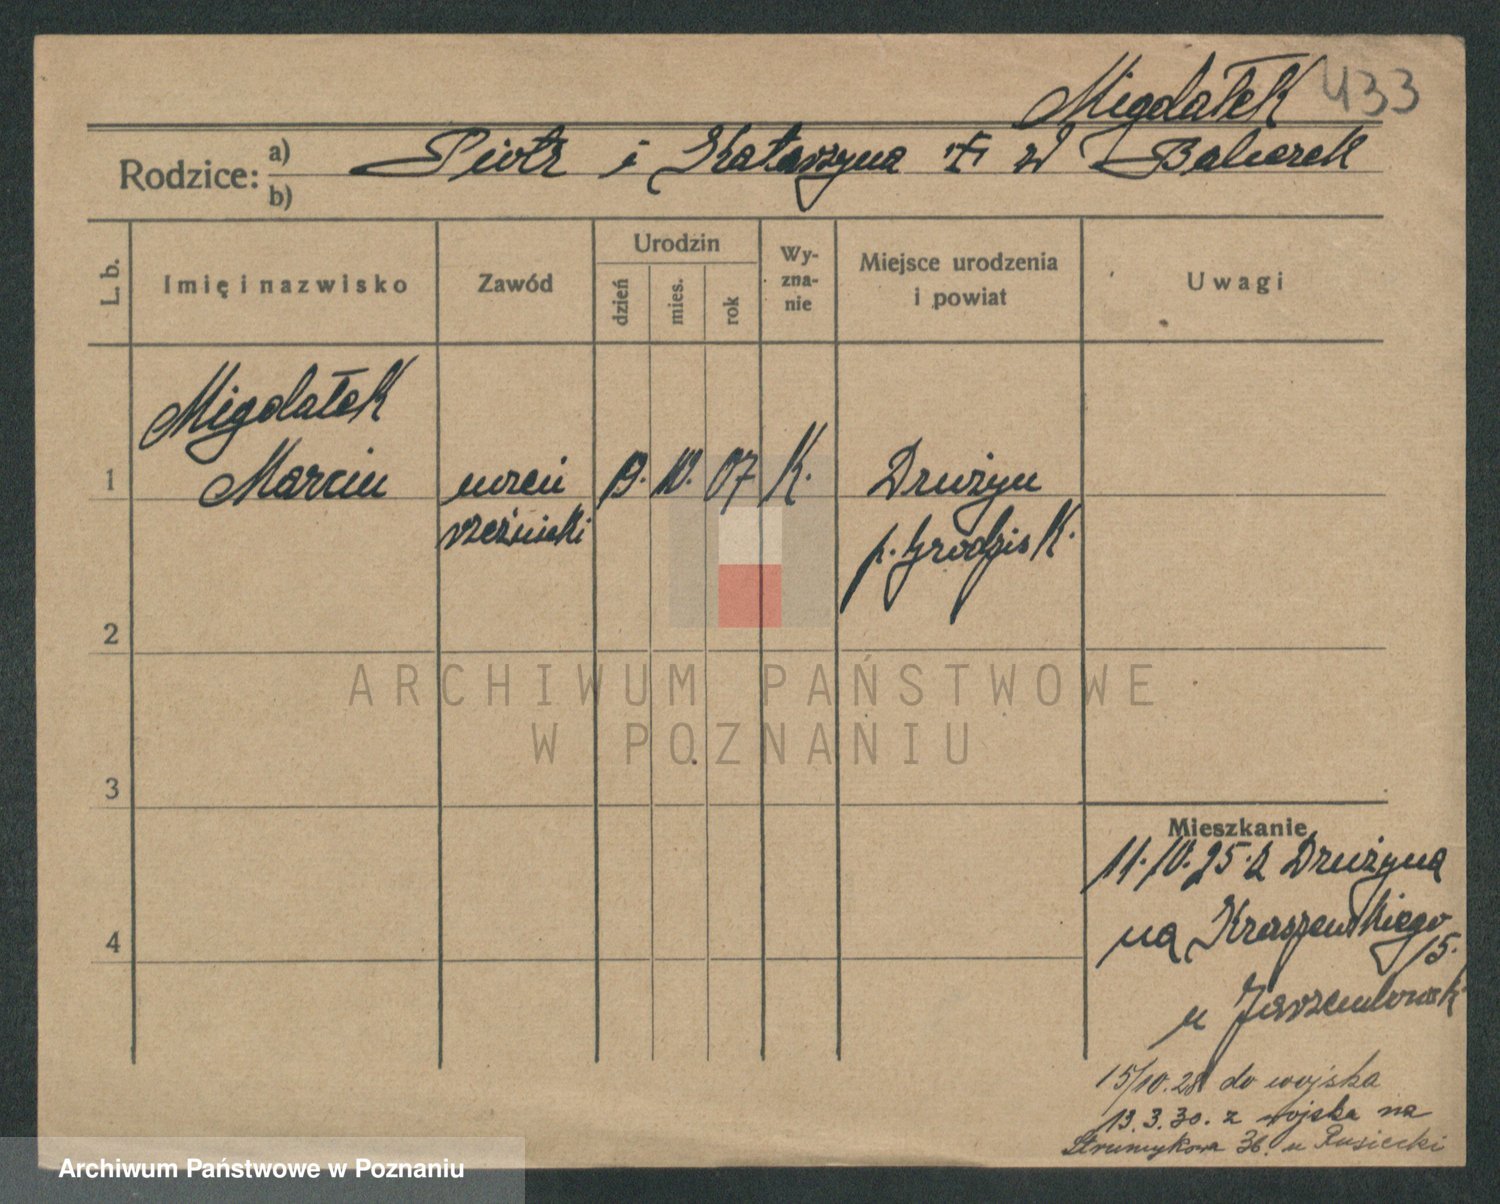 Migdałek 433
Rodzice: a) Piotr i Katarzyna
b)
L. b.
Imię i nazwisko
Zawód
Urodzin
dzień
mies.
rok
Wy-
zna-
nie
Miejsce urodzenia
i powiat
Uwagi
Migdałek
1 Marcin uczeń 10. 07 K. Drużyn
rzeźnicki p. Grodzisk.
2
ARCHIWUM PAŃSTWOWE
W POZNANIU
3
Mieszkanie
11.10.25. z Drużyna
na Kraszewskiego
15.
4
u
15/10.28 do wojska
13.3.30. z wojska na
Strumykowa 36. u Rusiecki
Archiwum Państwowe w Poznaniu